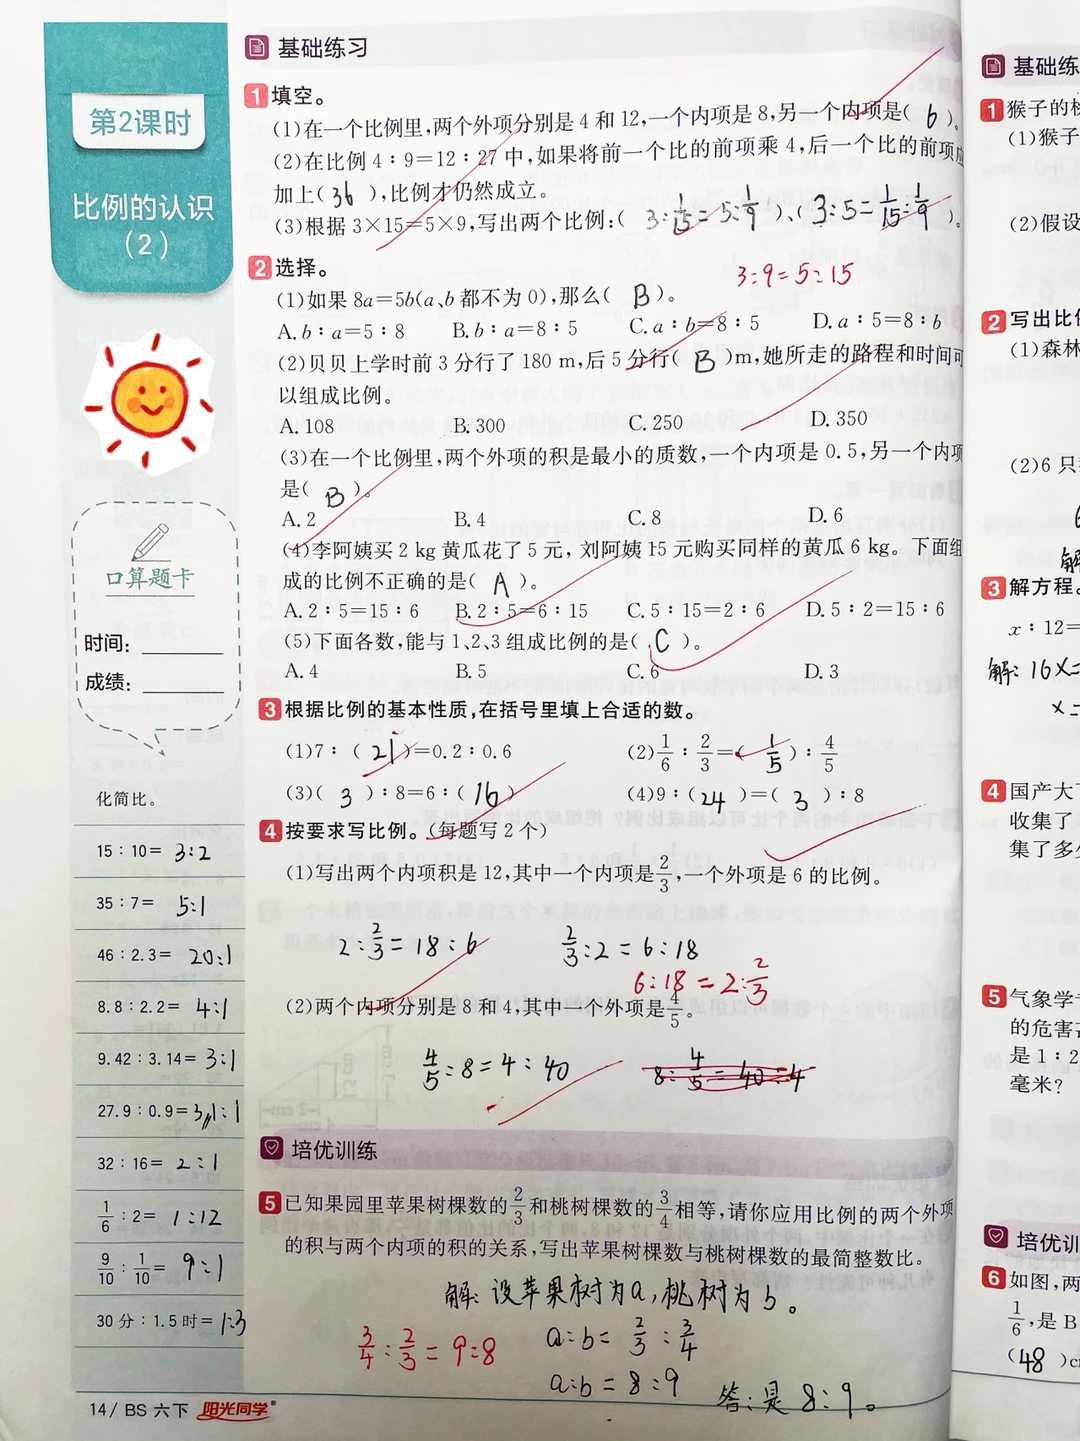 第2课时
比例的认识
（2）
口算题卡
时间：
成绩：
化简比。
15：10= 3:2
35：7= 5:1
46：2.3= 20:1
8.8：2.2= 4:1
9.42：3.14= 3:1
27.9：0.9= 31:1
32：16= 2:1
1/6：2= 1:12
9/10：1/10= 9:1
30分：1.5时= 1:3
14/ BS 六下 阳光同学
基础练习
1 填空。
(1)在一个比例里,两个外项分别是4和12,一个内项是8,另一个内项是( 6 )。
(2)在比例4：9=12：27中,如果将前一个比的前项乘4,后一个比的前项应
加上( 36 ),比例才仍然成立。
(3)根据3×15=5×9,写出两个比例:( 3:1/15=5:1/9 )、( 3:5=1/15:1/9 )。
3:9=5:15
2 选择。
(1)如果8a=5b(a、b都不为0),那么( B )。
A. b：a=5：8 B. b：a=8：5 C. a：b=8：5 D. a：5=8：b
(2)贝贝上学时前3分行了180 m,后5分行( B )m,她所走的路程和时间可
以组成比例。
A. 108 B. 300 C. 250 D. 350
(3)在一个比例里,两个外项的积是最小的质数,一个内项是0.5,另一个内项
是( B )。
A. 2 B. 4 C. 8 D. 6
(4)李阿姨买2 kg黄瓜花了5元, 刘阿姨15元购买同样的黄瓜6 kg。下面组
成的比例不正确的是( A )。
A. 2：5=15：6 B. 2：5=6：15 C. 5：15=2：6 D. 5：2=15：6
(5)下面各数,能与1、2、3组成比例的是( C )。
A. 4 B. 5 C. 6 D. 3
3 根据比例的基本性质,在括号里填上合适的数。
(1)7：( 21 )=0.2：0.6 (2)1/6：2/3=( 1/5 )：4/5
(3)( 3 )：8=6：( 16 ) (4)9：( 24 )=( 3 )：8
4 按要求写比例。(每题写2个)
(1)写出两个内项积是12,其中一个内项是2/3,一个外项是6的比例。
2:2/3=18:6 2/3:2=6:18
6:18=2:2/3
(2)两个内项分别是8和4,其中一个外项是4/5。
4/5:8=4:40 8:4/5=40:4
培优训练
5 已知果园里苹果树棵数的2/3和桃树棵数的3/4相等,请你应用比例的两个外项
的积与两个内项的积的关系,写出苹果树棵数与桃树棵数的最简整数比。
解:设苹果树为a,桃树为b。
3/4:2/3=9:8 a:b=2/3:3/4
a:b=8:9 答:是8:9。
基础练
1 猴子的
(1)猴子
(2)假设
2 写出比例
(1)森林
(2)6只
解
3 解方程。
x：12=
解:16x=
x=
4 国产大
收集了
集了多
5 气象学
的危害
是1：2
毫米?
培优训
6 如图,两
1/6,是B
( 48 )c